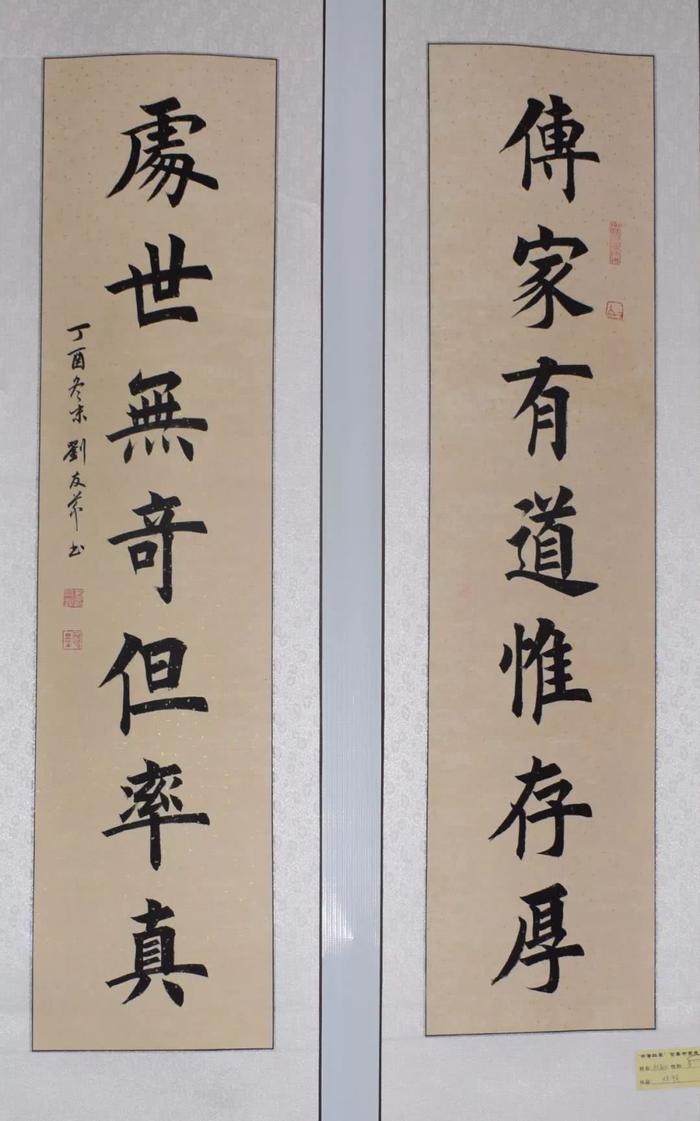 傳家有道惟存厚
處世無奇但率真
丁酉冬末劉友華书